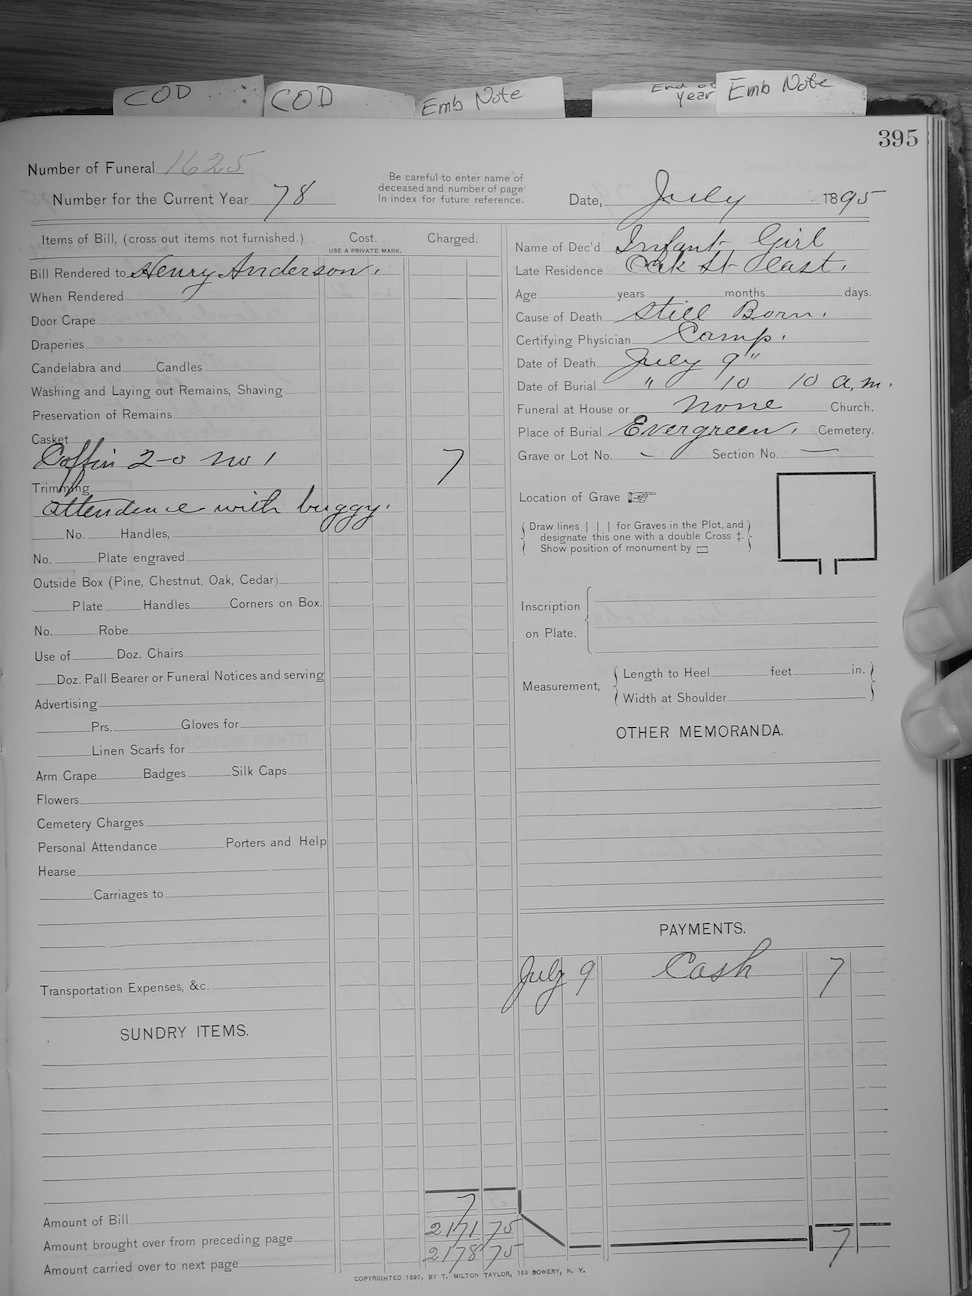 COD
COD
Emb Note
End of year
Emb Note
395
Number of Funeral 1625
Number for the Current Year 78
Be careful to enter name of
deceased and number of page
in index for future reference.
Date, July 1895
Items of Bill, (cross out items not furnished.)
Cost.
USE A PRIVATE MARK.
Charged.
Bill Rendered to Henry Anderson.
When Rendered
Door Crape
Draperies
Candelabra and Candles
Washing and Laying out Remains, Shaving
Preservation of Remains
Casket
Coffin 2-0 no 1 7
Trimming
attendence with buggy.
No. Handles,
No. Plate engraved
Outside Box (Pine, Chestnut, Oak, Cedar)
Plate Handles Corners on Box.
No. Robe
Use of Doz. Chairs
Doz. Pall Bearer or Funeral Notices and serving
Advertising
Prs. Gloves for
Linen Scarfs for
Arm Crape Badges Silk Caps
Flowers
Cemetery Charges
Personal Attendance Porters and Help
Hearse
Carriages to
Transportation Expenses, &c.
SUNDRY ITEMS.
Amount of Bill 7
Amount brought over from preceding page 2171 75
Amount carried over to next page 2178 75
Name of Dec'd Infant Girl
Late Residence Oak St- East.
Age years months days.
Cause of Death Still Born.
Certifying Physician Camp.
Date of Death July 9"
Date of Burial " 10 10 a.m.
Funeral at House or none Church.
Place of Burial Evergreen. Cemetery.
Grave or Lot No. - Section No. —
Location of Grave ☞
Draw lines | | | for Graves in the Plot, and
designate this one with a double Cross ‡.
Show position of monument by ▭
Inscription
on Plate.
Measurement,
Length to Heel feet in.
Width at Shoulder
OTHER MEMORANDA.
PAYMENTS.
July 9 Cash 7
7
COPYRIGHTED 1890, BY T. MILTON TAYLOR, 163 BOWERY, N. Y.